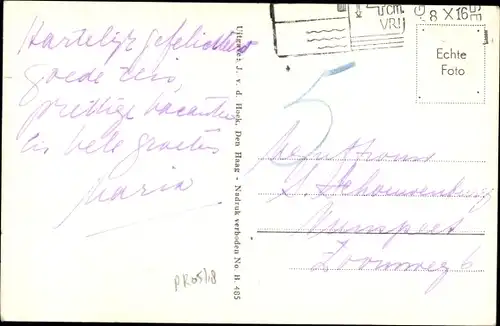 Hartelijk gefeliciteerd
goede reis,
prettige vacantie
en vele groeten
Maria
Uitgever J. v. d. Hoek, Den Haag - Nadruk verboden No. H. 405
4 cm
VRIJ
8 X 16
Echte
Foto
5
Schouwenburg
Nunspeet
Zoomweg 6
PR05/18